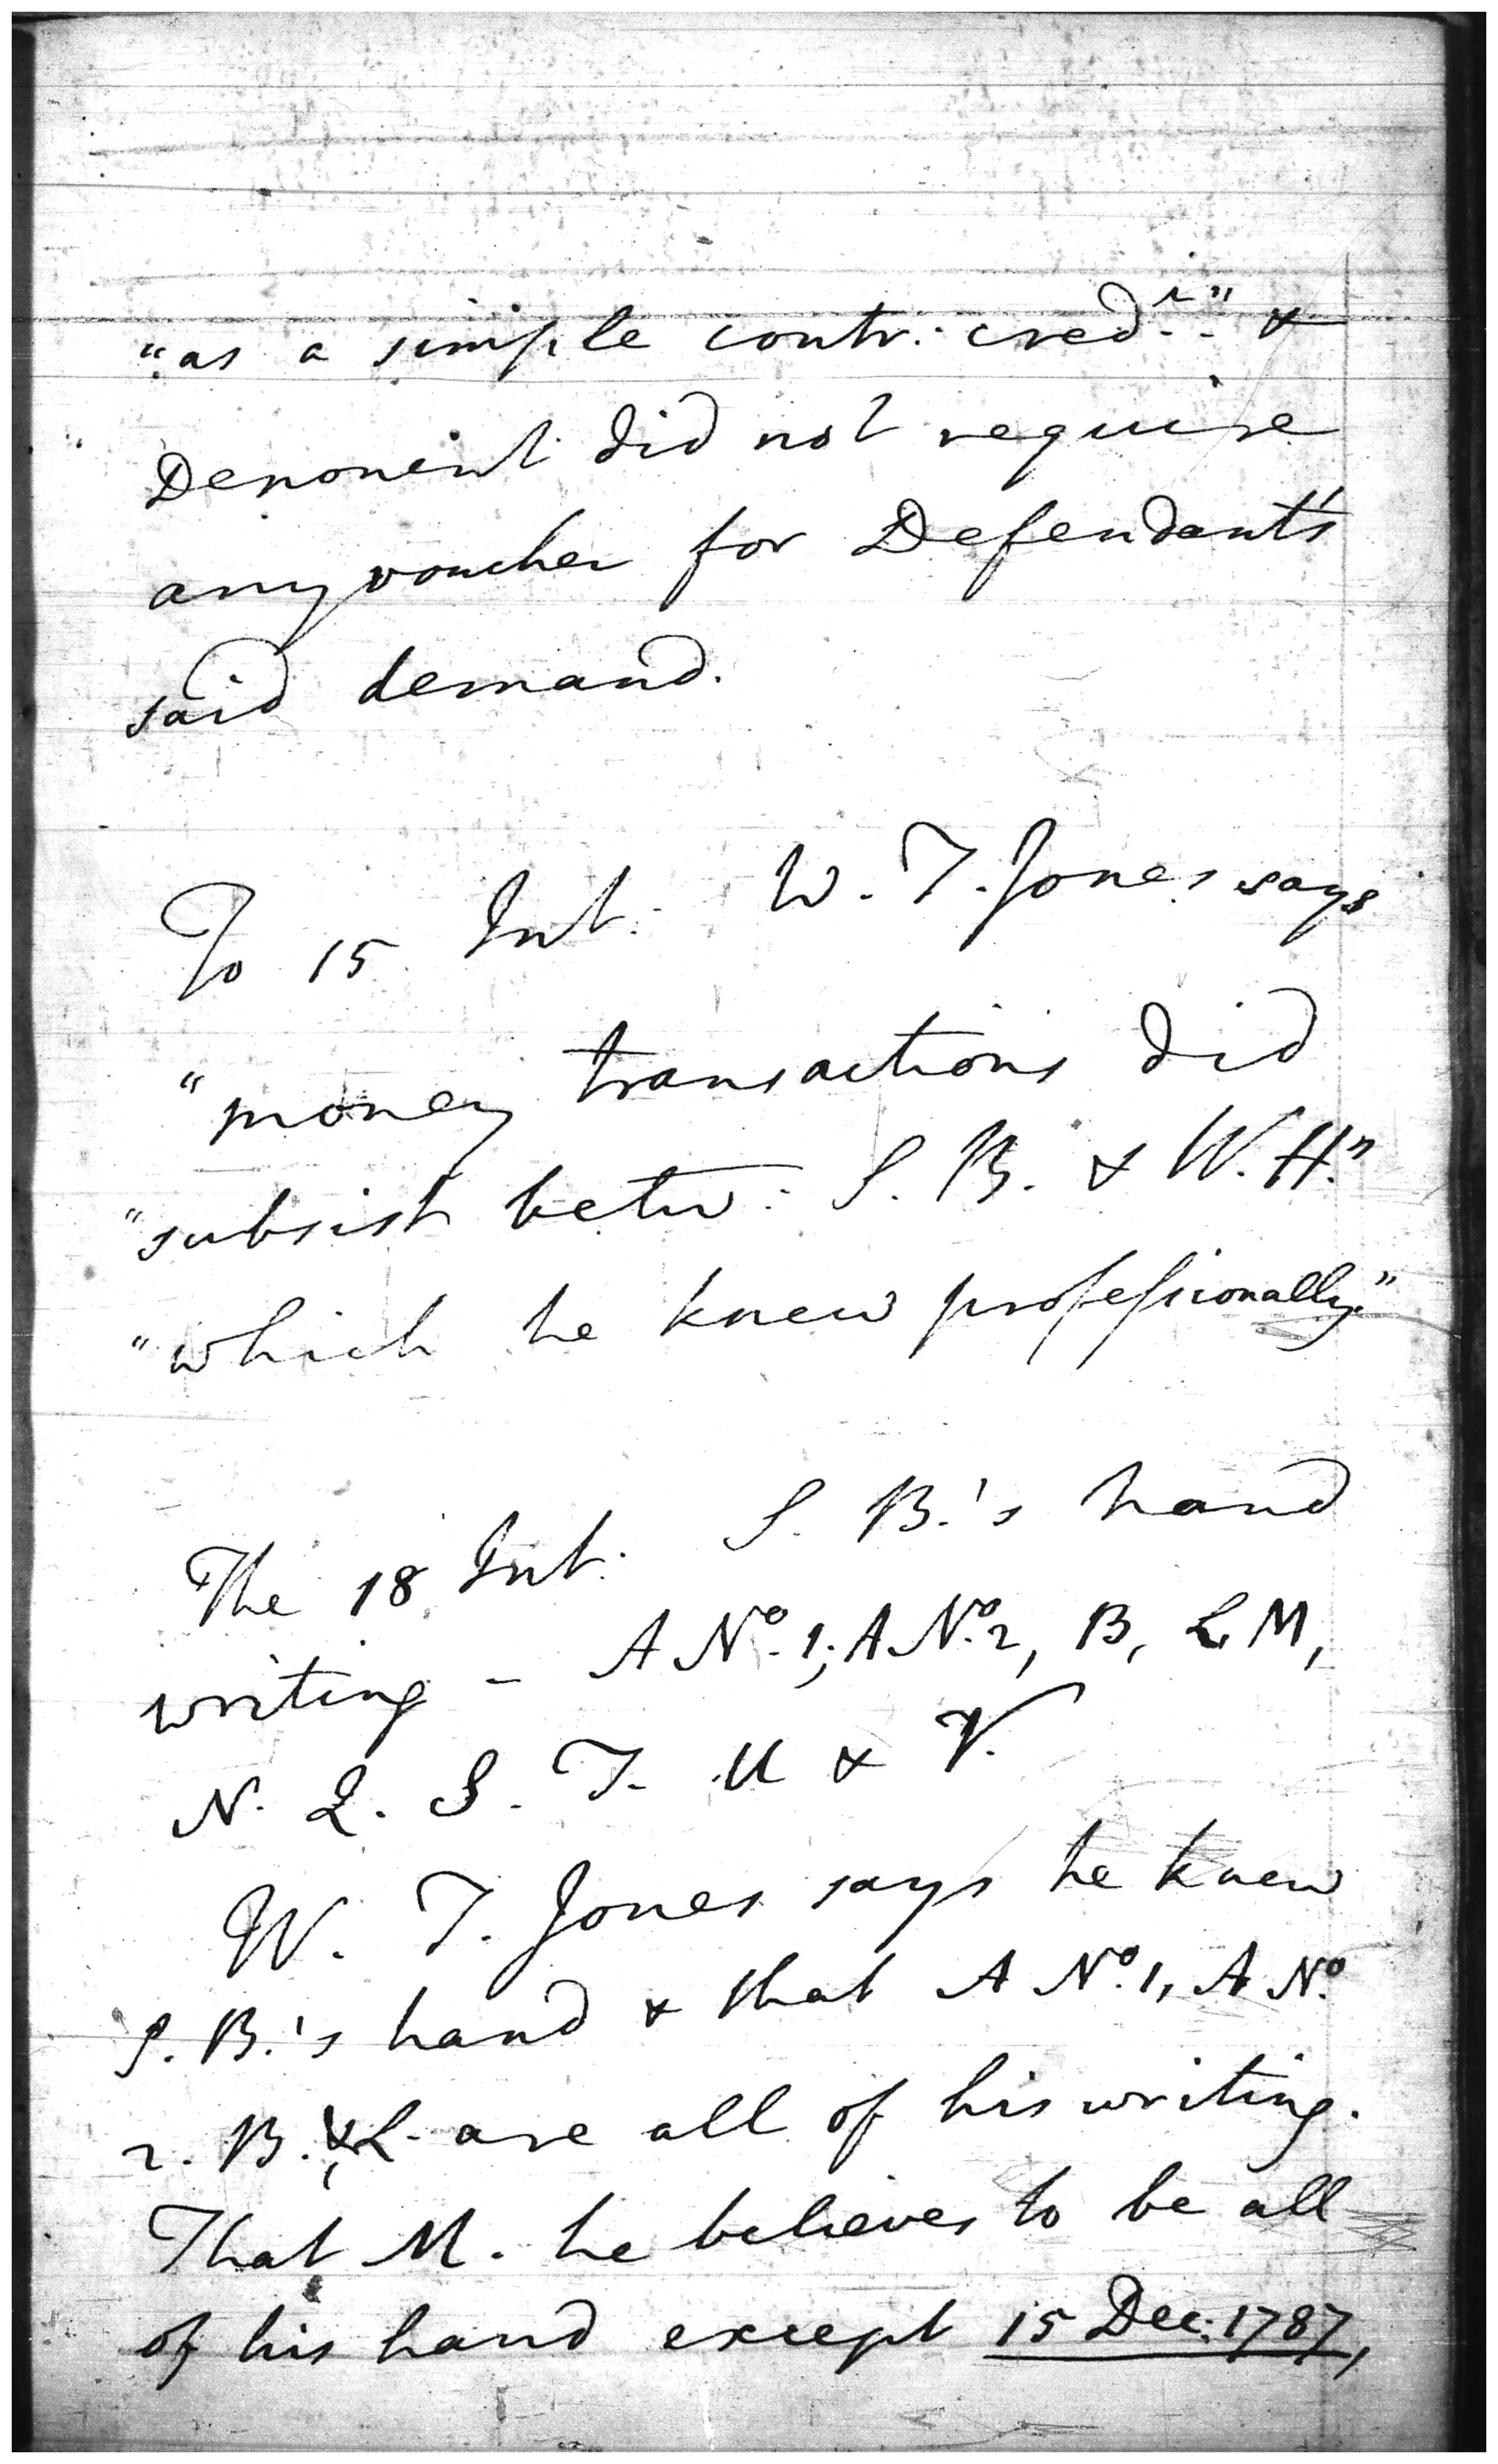 "as a simple contr: cred.r" &
Deponent did not require
any voucher for Defendant's
said demand.
To 15 Int: W. T. Jones says
"money transactions did
"subsist betw: S. B. & W. H."
"which he knew professionally."
The 18 Int: S. B.'s hand
writing - A No. 1; A No. 2, B, L, M,
N. Q. S. T. U & V.
W. T. Jones says he knew
S. B.'s hand & that A No. 1, A No.
2. B. & L. are all of his writing.
That M. he believes to be all
of his hand except 15 Dec: 1787,